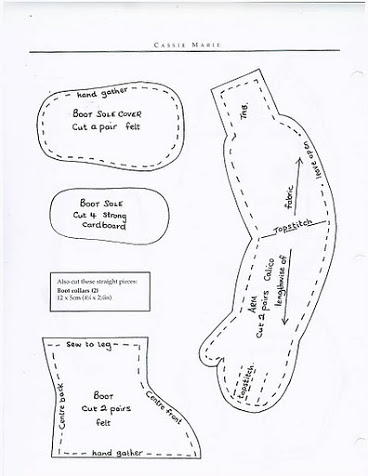 CASSIE MARIE
hand gather
BOOT SOLE COVER
Cut a pair felt
BOOT SOLE
Cut 4 strong
cardboard
Also cut these straight pieces:
Boot collars (2)
12 x 5cm (4¾ x 2in)
Sew to leg
Centre back
BOOT
Cut 2 pairs
felt
Centre front
hand gather
TAB
leave open
fabric
Topstitch
ARM Calico
Cut 2 pairs
lengthwise of
topstitch